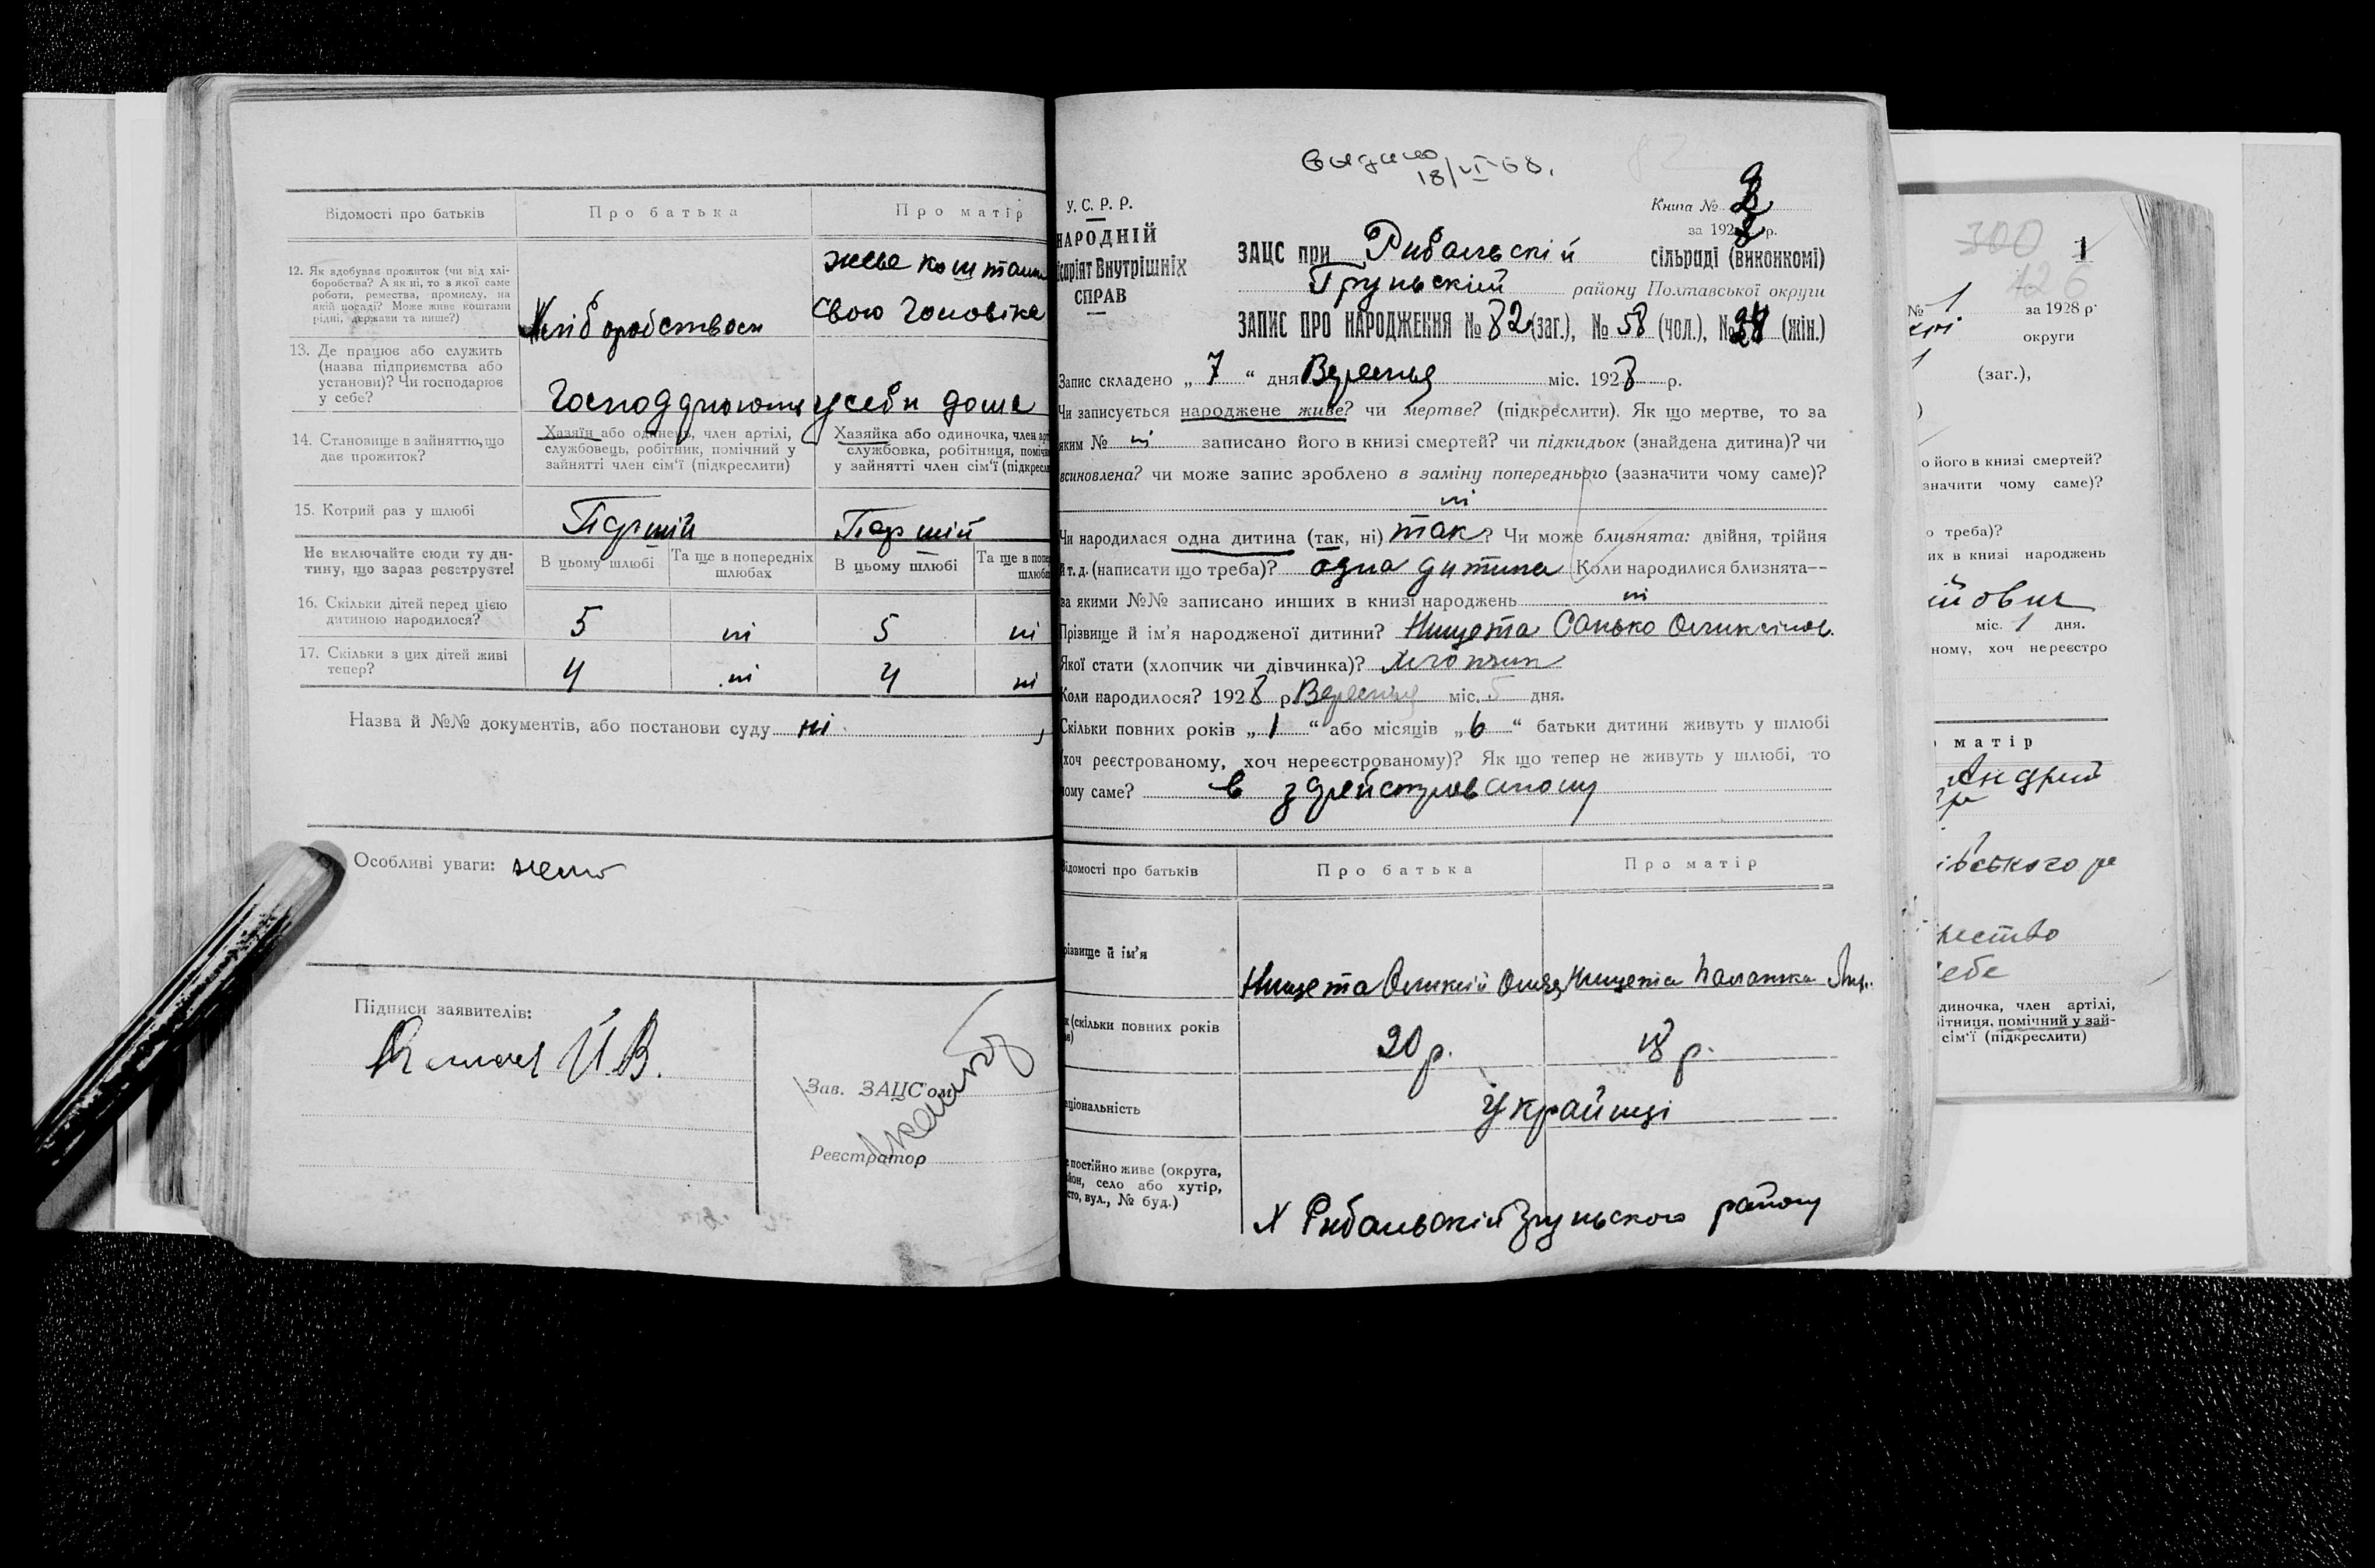 Відомості про батьків
Про батька
Про матір
12. Як здобуває прожиток (чи від хлі-
боробства? А як ні, то з якої саме
роботи, ремества, промислу, на
якій посаді? Може живе коштами
рідні, держави та инше?)
Хліборобством
живе коштами
свого чоловіка
13. Де працює або служить
(назва підприємства або
установи)? Чи господарює
у себе?
у себи дома
14. Становище в зайняттю, що
дає прожиток?
Хазяїн або одинець, член артілі,
службовець, робітник, помічний у
зайнятті член сім'ї (підкреслити)
Хазяйка або одиночка, член арт
службовка, робітниця, помічн
у зайнятті член сім'ї (підкресл
15. Котрий раз у шлюбі
Першій
Першій
Не включайте сюди ту ди-
тину, що зараз реєструєте!
В цьому шлюбі
Та ще в попередніх
шлюбах
В цьому шлюбі
Та ще в попе
шлюбах
16. Скільки дітей перед цією
дитиною народилося?
5 ні 5 ні
17. Скільки з цих дітей живі
тепер?
4 ні 4 ні
Назва й №№ документів, або постанови суду ні
Особливі уваги: нема
Підписи заявителів:
Й.В.
Зав. ЗАЦС'ом
Реєстратор
видано
18/VI-68.
У. С. Р. Р.
НАРОДНІЙ
ісаріят Внутрішніх
СПРАВ
Книга № 2
за 1928 р.
ЗАЦС при Рибальскій сільраді (виконкомі)
Груньскій району Полтавської округи
ЗАПИС ПРО НАРОДЖЕННЯ № 82 (заг.), № 58 (чол.), № (жін.)
Запис складено „ 7 “ дня Вересня міс. 1928 р.
Чи записується народжене живе? чи мертве? (підкреслити). Як що мертве, то за
яким № ні записано його в книзі смертей? чи підкидьок (знайдена дитина)? чи
всиновлена? чи може запис зроблено в заміну попереднього (зазначити чому саме)?
ні
Чи народилася одна дитина (так, ні) так? Чи може близнята: двійня, трійня
й т. д. (написати що треба)? одна дитина Коли народилися близнята—
за якими №№ записано инших в книзі народжень ні
Прізвище й ім'я народженої дитини? Нищета Санько
Якої стати (хлопчик чи дівчинка)? Хлопчик
Коли народилося? 1928 р. Вересня міс. 5 дня.
Скільки повних років „ 1 “ або місяців „ 6 “ батьки дитини живуть у шлюбі
(хоч реєстрованому, хоч нереєстрованому)? Як що тепер не живуть у шлюбі, то
чому саме? в
Відомості про батьків
Про батька
Про матір
різвище й ім'я
Нищета Нищета
к (скільки повних років
20 р.
18 р.
аціональність
Українці
е постійно живе (округа,
йон, село або хутір,
сто, вул., № буд.)
Х Рибальскій Груньского району
300
426
1
№ 1 за 1928 р.
округи
1 (заг.),
)
о його в книзі смертей?
значити чому саме)?
о треба)?
их в книзі народжень
йович
міс. 1 дня.
ному, хоч нереєстро
матір
івського ра
себе
диночка, член артілі,
ітниця, помічний у зай-
сім'ї (підкреслити)